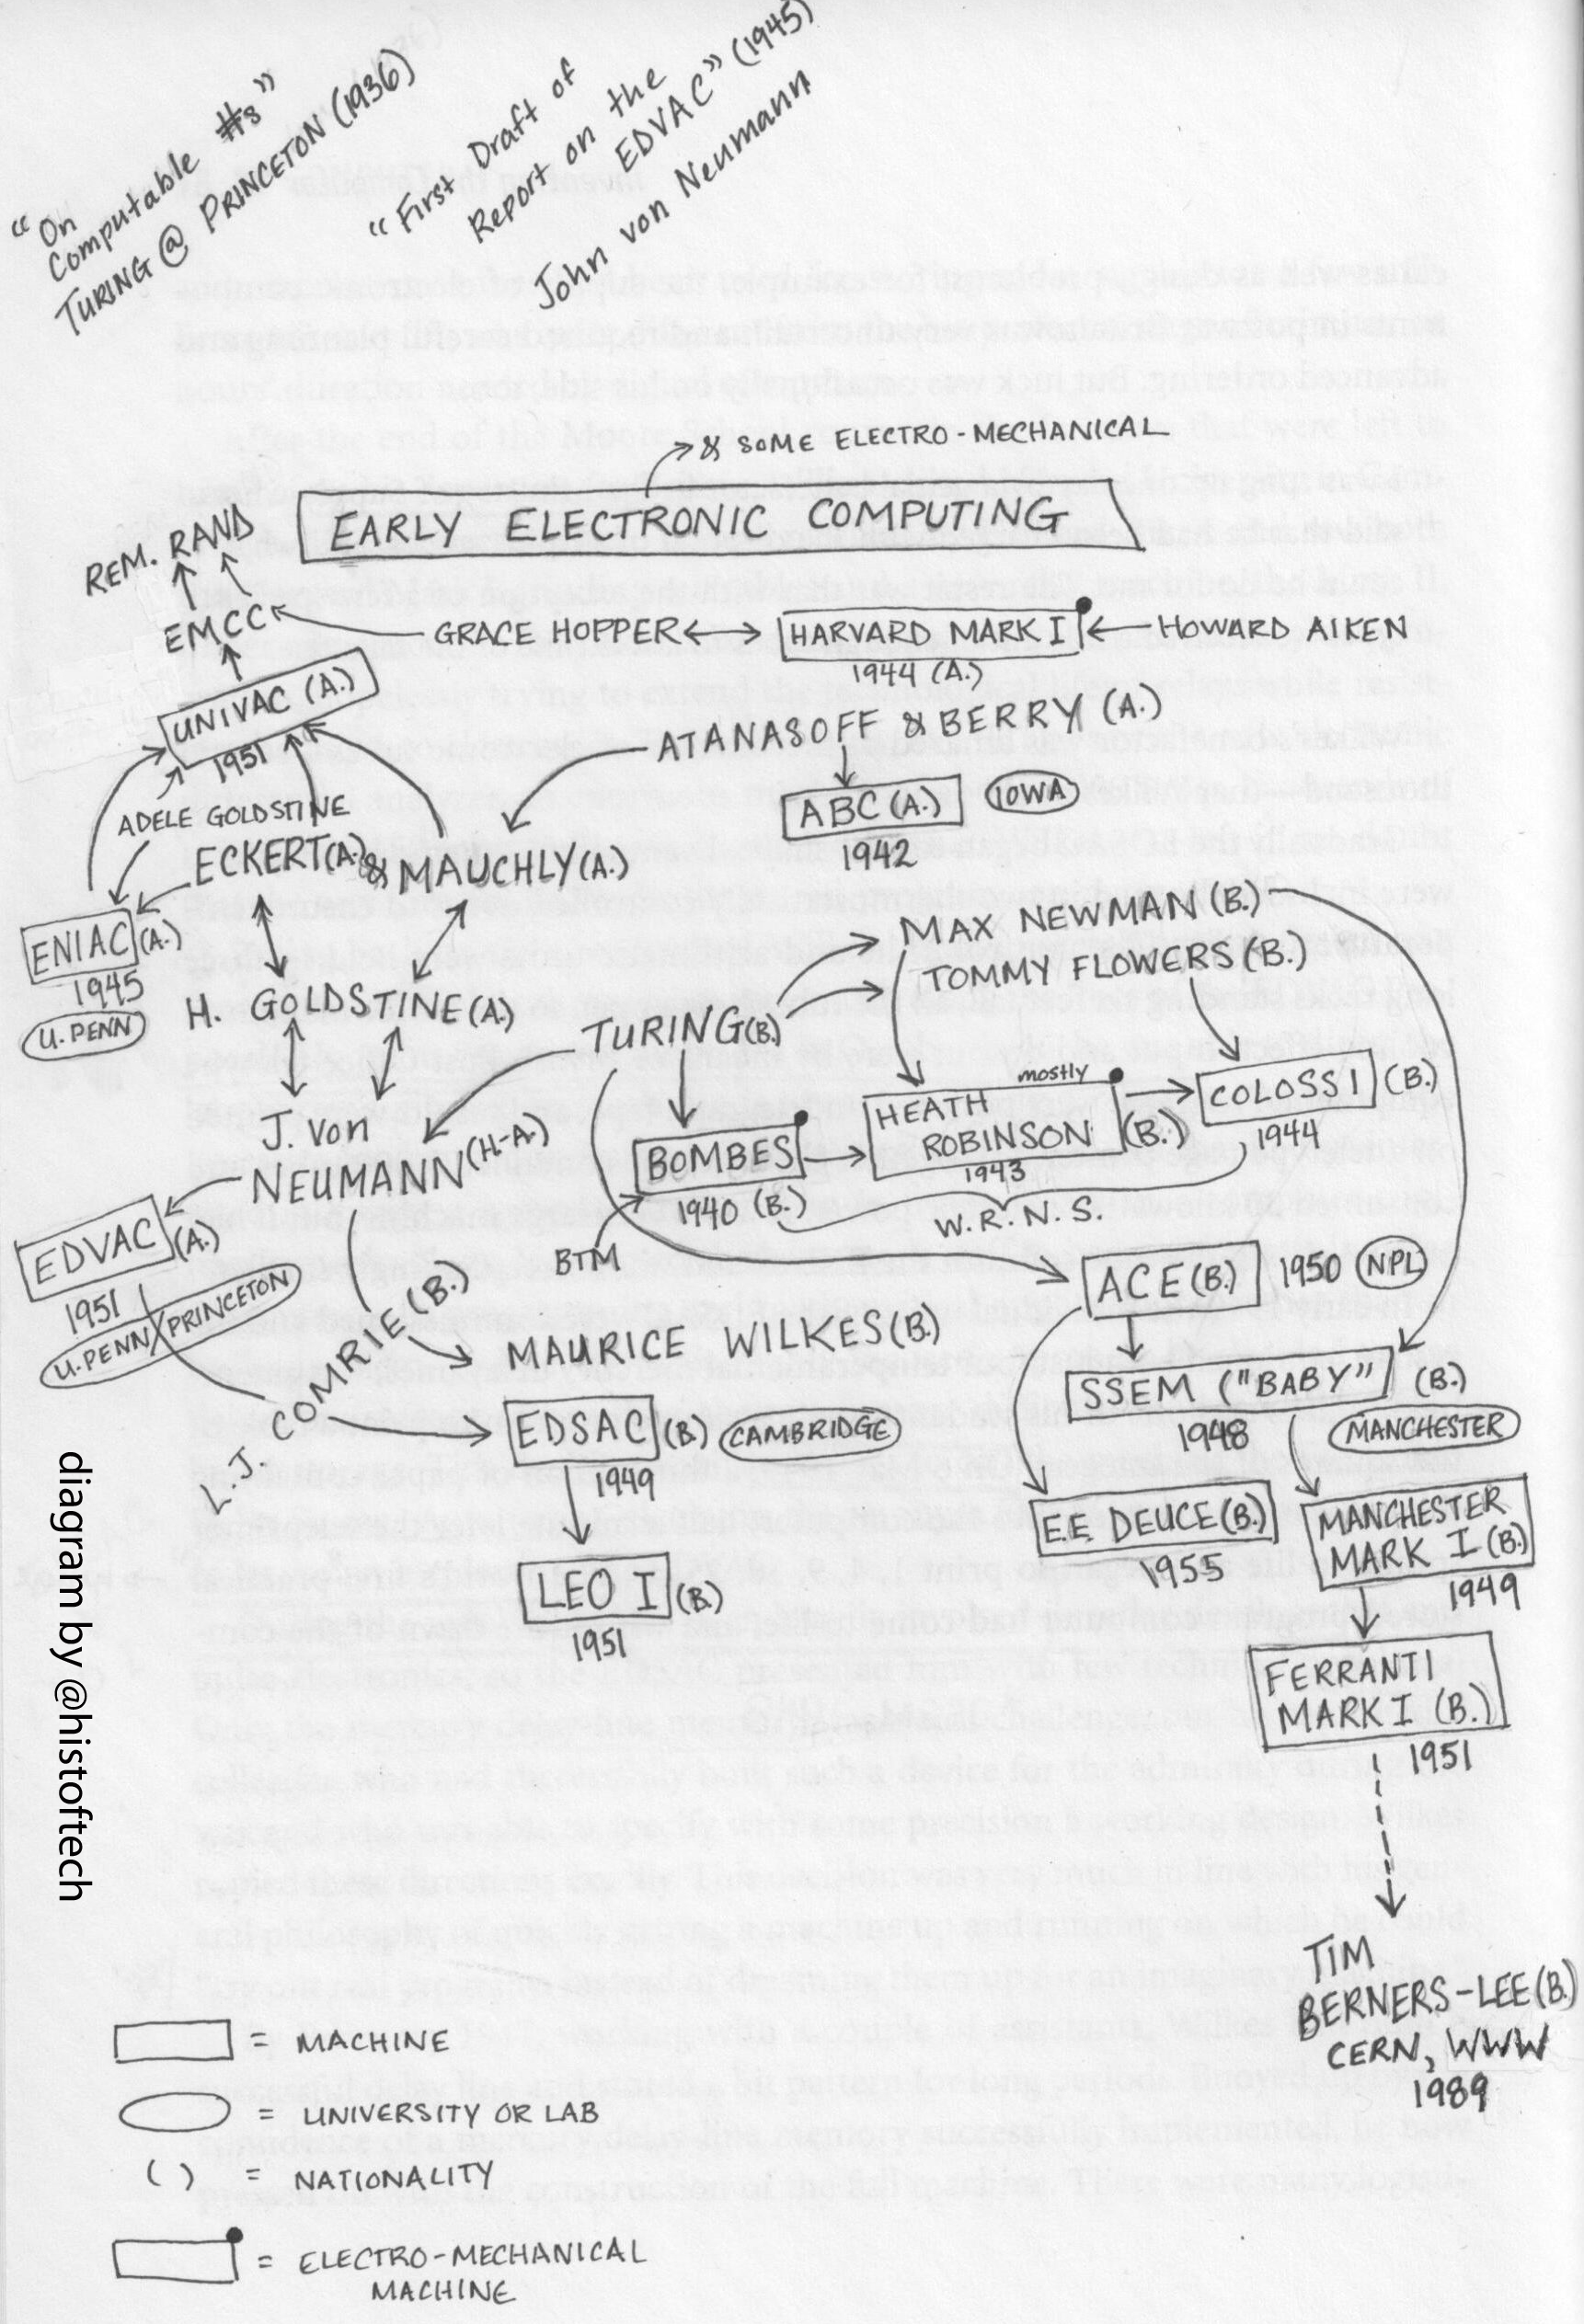 “On
Computable #s”
TURING @ PRINCETON (1936)
“First Draft of
Report on the
EDVAC” (1945)
John von Neumann
& SOME ELECTRO-MECHANICAL
EARLY ELECTRONIC COMPUTING
REM. RAND
EMCC
GRACE HOPPER
HARVARD MARK I
HOWARD AIKEN
1944 (A.)
UNIVAC (A.)
1951
ATANASOFF & BERRY (A.)
ABC (A.)
IOWA
1942
ADELE GOLDSTINE
ECKERT (A.) & MAUCHLY (A.)
ENIAC (A.)
1945
U. PENN
H. GOLDSTINE (A.)
MAX NEWMAN (B.)
TOMMY FLOWERS (B.)
TURING (B.)
mostly
HEATH
ROBINSON (B.)
1943
COLOSSI (B.)
1944
J. von
NEUMANN (H-A.)
BOMBES
1940 (B.)
W.R.N.S.
BTM
EDVAC (A.)
1951
U. PENN/PRINCETON
ACE (B.) 1950 NPL
L.J. COMRIE (B.)
MAURICE WILKES (B.)
SSEM ("BABY") (B.)
1948
MANCHESTER
EDSAC (B.) CAMBRIDGE
1949
E.E. DEUCE (B.)
1955
MANCHESTER
MARK I (B.)
1949
LEO I (B.)
1951
FERRANTI
MARK I (B.)
1951
TIM
BERNERS-LEE (B.)
CERN, WWW
1989
diagram by @histoftech
= MACHINE
= UNIVERSITY OR LAB
( ) = NATIONALITY
= ELECTRO-MECHANICAL
MACHINE